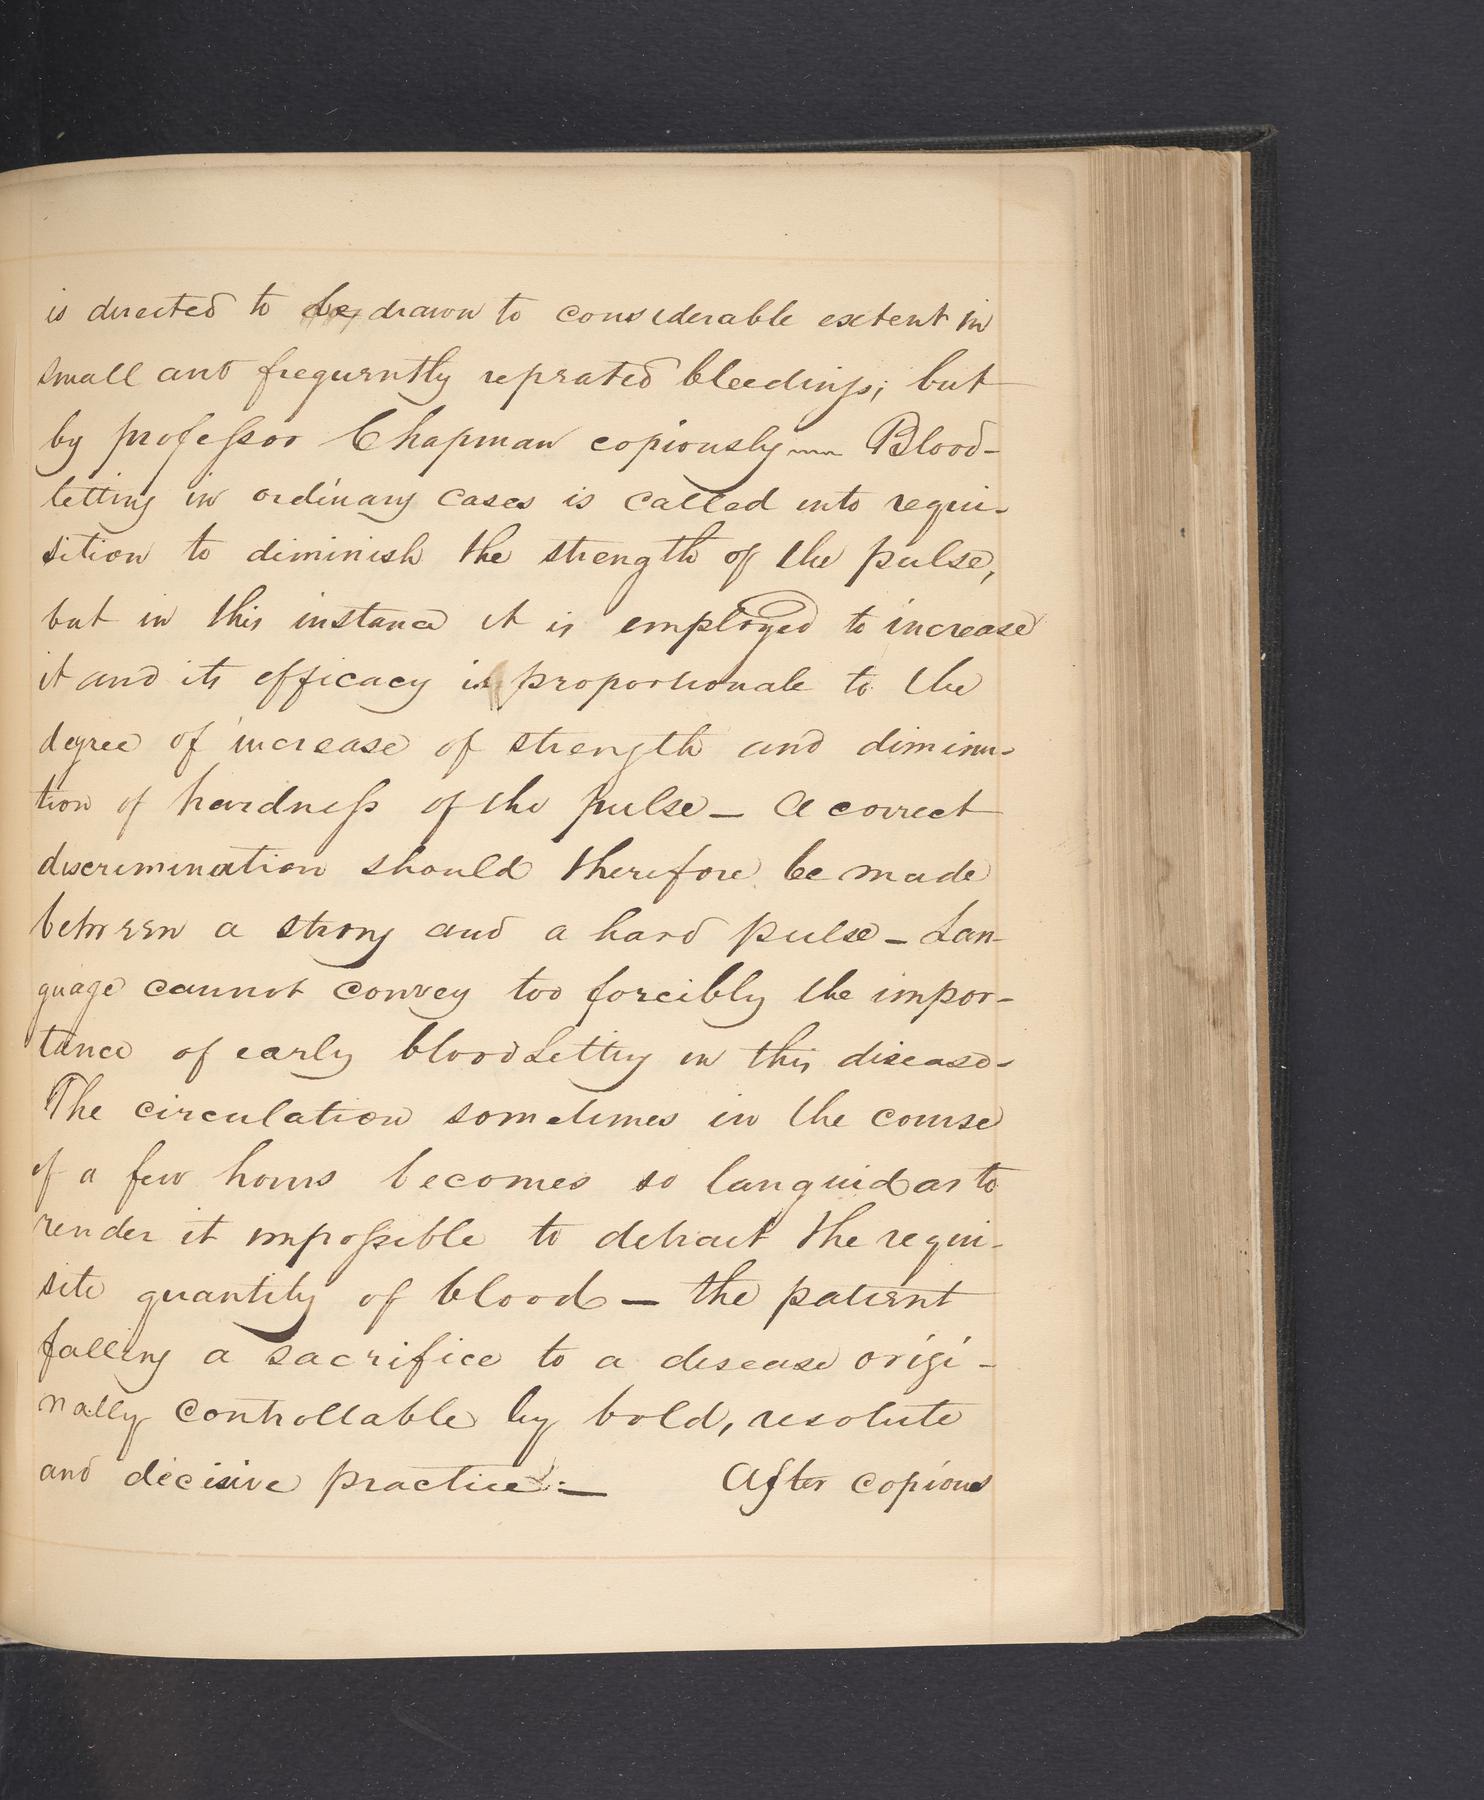 is directed to be drawn to considerable extent in
small and frequently repeated bleedings; but
by professor Chapman copiously — Blood-
letting in ordinary cases is called into requi-
sition to diminish the strength of the pulse,
but in this instance it is employed to increase
it and its efficacy is proportionate to the
degree of increase of strength and diminu-
tion of hardness of the pulse — A correct
discrimination should therefore be made
between a strong and a hard pulse — Lan-
guage cannot convey too forcibly the impor-
tance of early bloodletting in this disease-
The circulation sometimes in the course
of a few hours becomes so languid as to
render it impossible to detract the requi-
site quantity of blood — the patient
falling a sacrifice to a disease origi-
nally controllable by bold, resolute
and decisive practice. — After copious